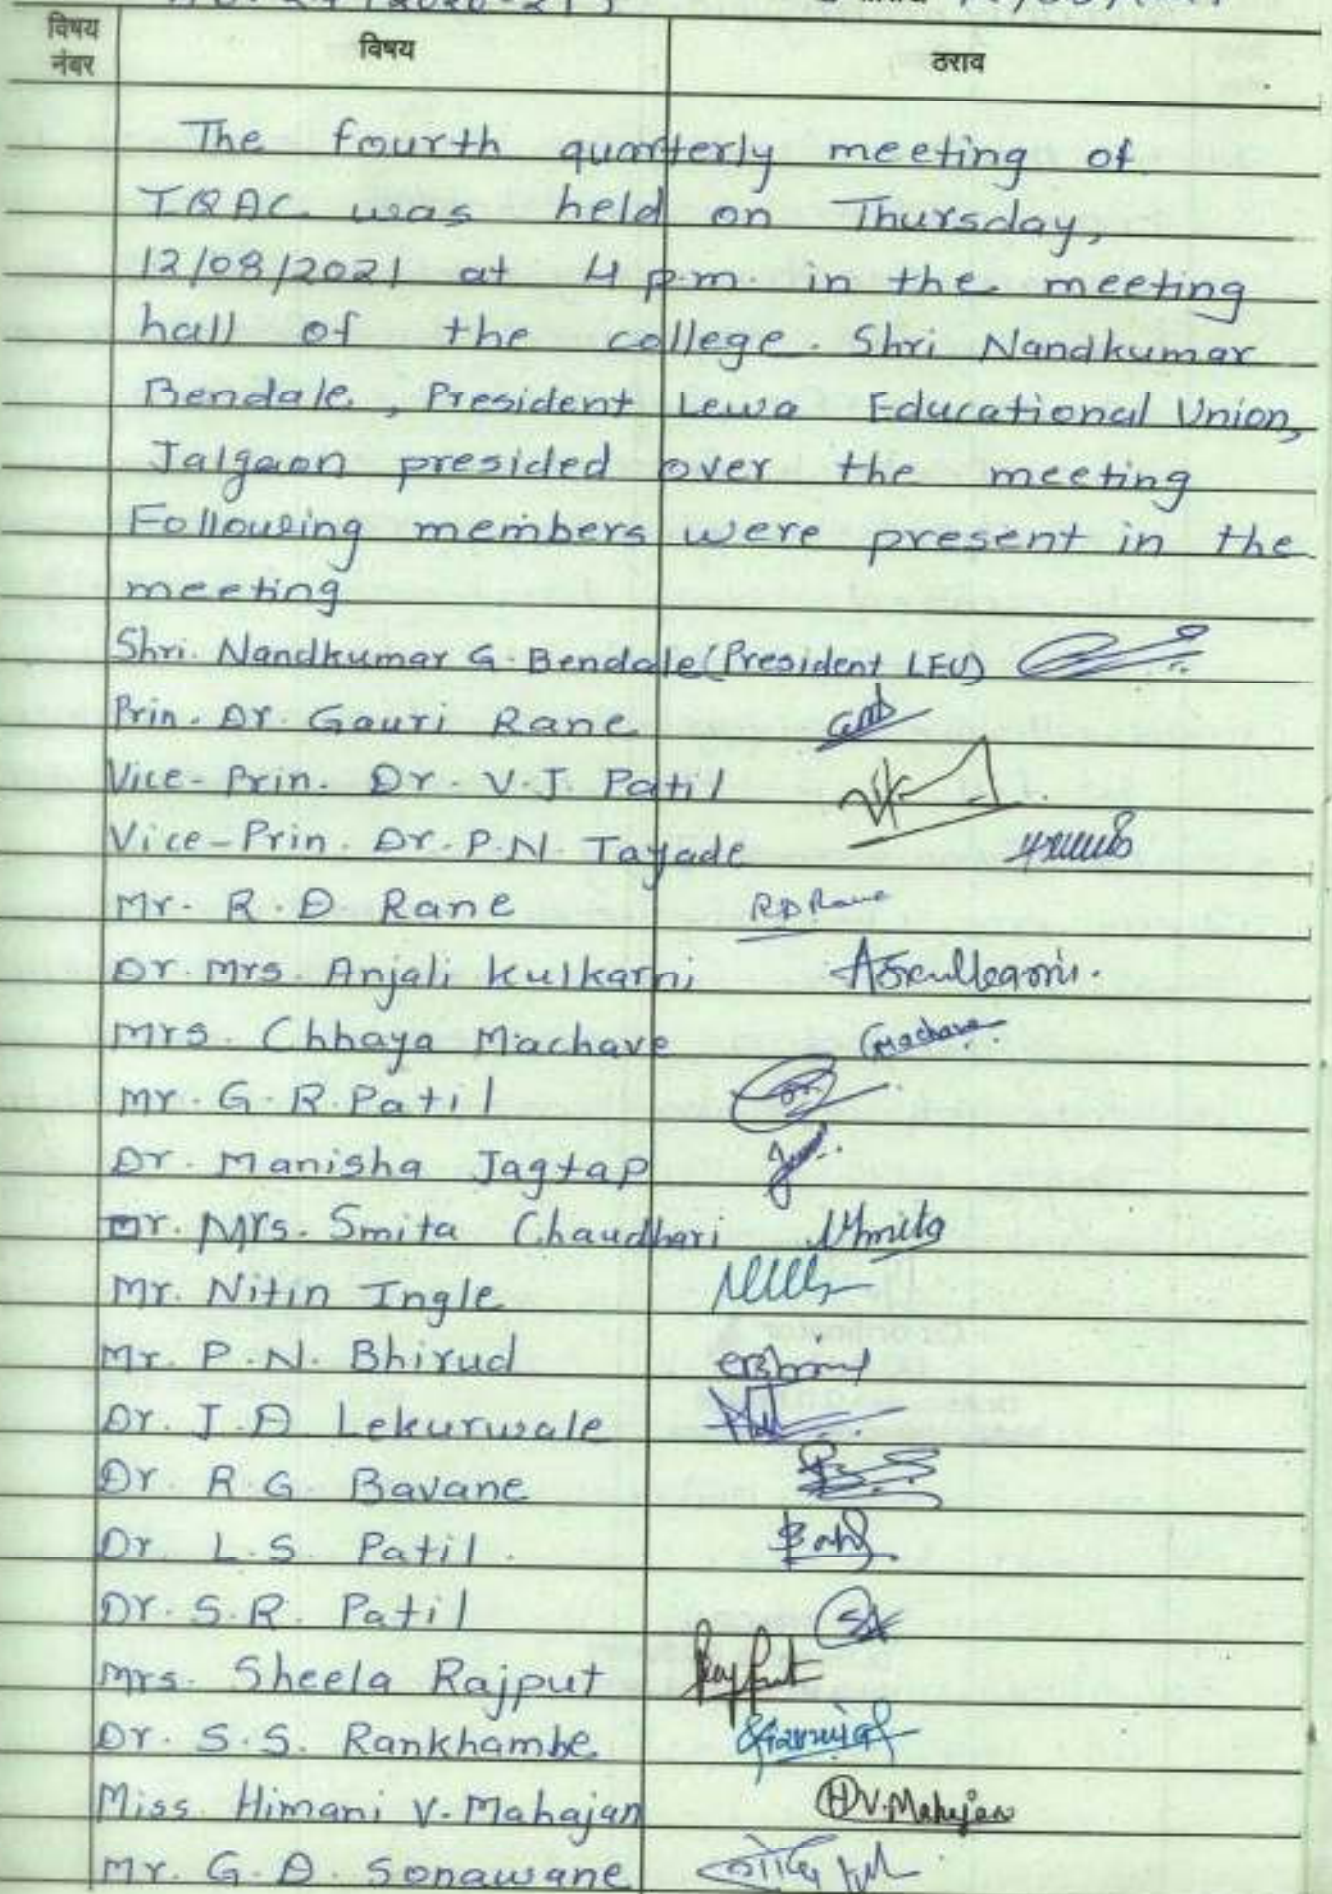 विषय नंबर
विषय
ठराव
The fourth quarterly meeting of
IQAC was held on Thursday,
12/08/2021 at 4 p.m. in the meeting
hall of the college. Shri Nandkumar
Bendale, President Lewa Educational Union,
Jalgaon presided over the meeting
Following members were present in the
meeting
Shri. Nandkumar G. Bendale (President LEU)
Prin. Dr. Gauri Rane
Vice-Prin. Dr. V.J. Patil
Vice-Prin. Dr. P.N. Tayade
Mr. R.D. Rane RDRane
Dr. Mrs. Anjali Kulkarni
Mrs. Chhaya Machave CMachave
Mr. G.R. Patil
Dr. Manisha Jagtap
Mrs. Smita Chaudhari Smita
Mr. Nitin Ingle
Mr. P.N. Bhirud
Dr. J.D Lekurwale
Dr. R.G. Bavane
Dr. L.S. Patil.
Dr. S.R. Patil
Mrs. Sheela Rajput Rajput
Dr. S.S. Rankhambe
Miss. Himani V. Mahajan H.V.Mahajan
Mr. G.D. Sonawane